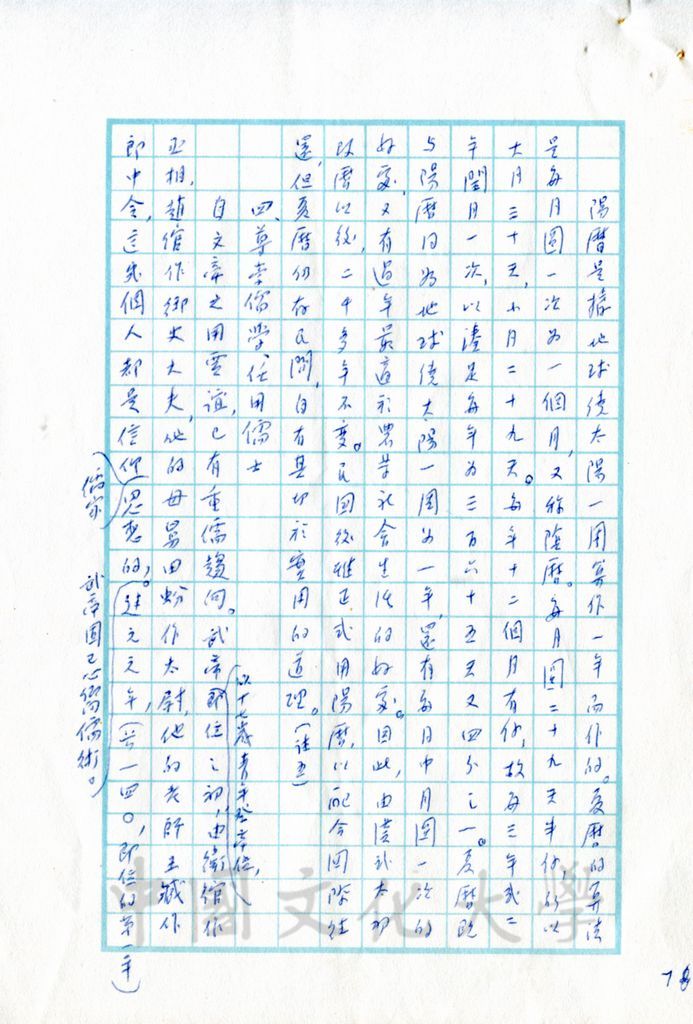 陽曆是據地球繞太陽一周算作一年而作的。夏曆的算法
是每月圓一次為一個月，又稱陰曆。每月圓二十九天半们，所以
大月三十天，小月二十九天。每年十二個月有们，故每三年或二
年閏月一次，以湊足每年為三百六十五天又四分之一。夏曆既
与陽曆同為地球繞太陽一周為一年，還有每月中月圓一次的
好處，又有過年最適於農業社會生活的好處。因此，由漢武太初
改曆以後，二千多年不變。民国後雖正式用陽曆，以配合国際往
還，但夏曆仍存民間，自有其切於實用的道理。（註五）
四、尊崇儒學，任用儒士
以十七歲青年登帝位，
自文帝之用賈誼，已有重儒趨向。武帝即位之初，由衛綰作
丞相，趙綰作御史大夫，他的母舅田蚡作太尉，他的老師王臧作
郎中令，這幾個人都是信仰思想的，（建元元年，（前一四〇，即位的第一年）
儒家
武帝固已心嚮儒術。
中國文化大學